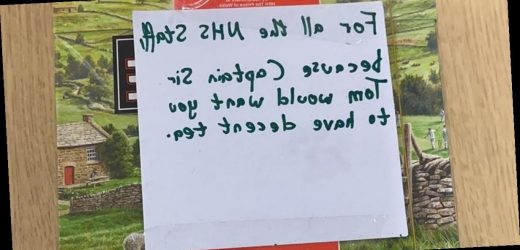 For all the NHS Staff,
because Captain Sir
Tom would want you
to have decent tea.